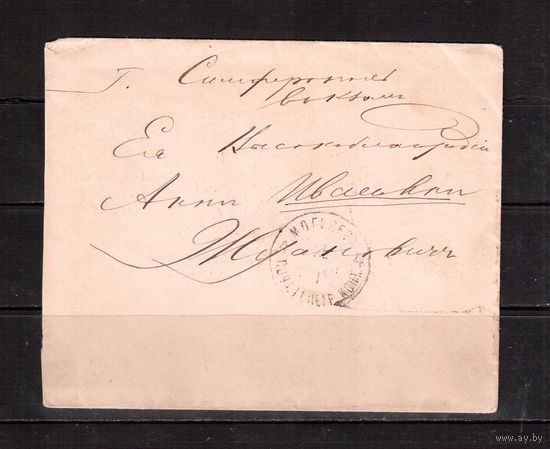 г. Симферополь
вокзал
Ея Высокоблагородiю
Анне Ивановне
МОГИЛЕВ
ПОЧТ. ТЕЛЕГР. КОНТ.
www.ay.by